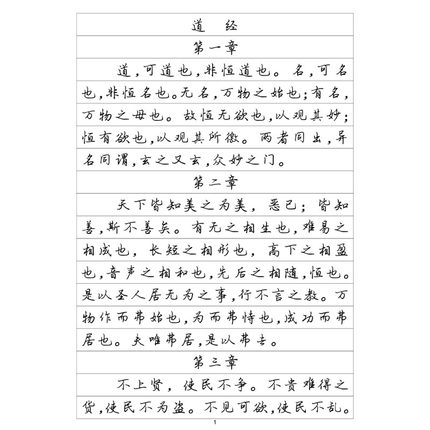 道 经
第一章
道,可道也,非恒道也。名,可名
也,非恒名也。无名,万物之始也;有名,
万物之母也。故恒无欲也,以观其妙;
恒有欲也,以观其所徼。两者同出,异
名同谓,玄之又玄,众妙之门。
第二章
天下皆知美之为美,恶已;皆知
善,斯不善矣。有无之相生也,难易之
相成也,长短之相形也,高下之相盈
也,音声之相和也,先后之相随,恒也。
是以圣人居无为之事,行不言之教。万
物作而弗始也,为而弗恃也,成功而弗
居也。夫唯弗居,是以弗去。
第三章
不上贤,使民不争。不贵难得之
货,使民不为盗。不见可欲,使民不乱。
1